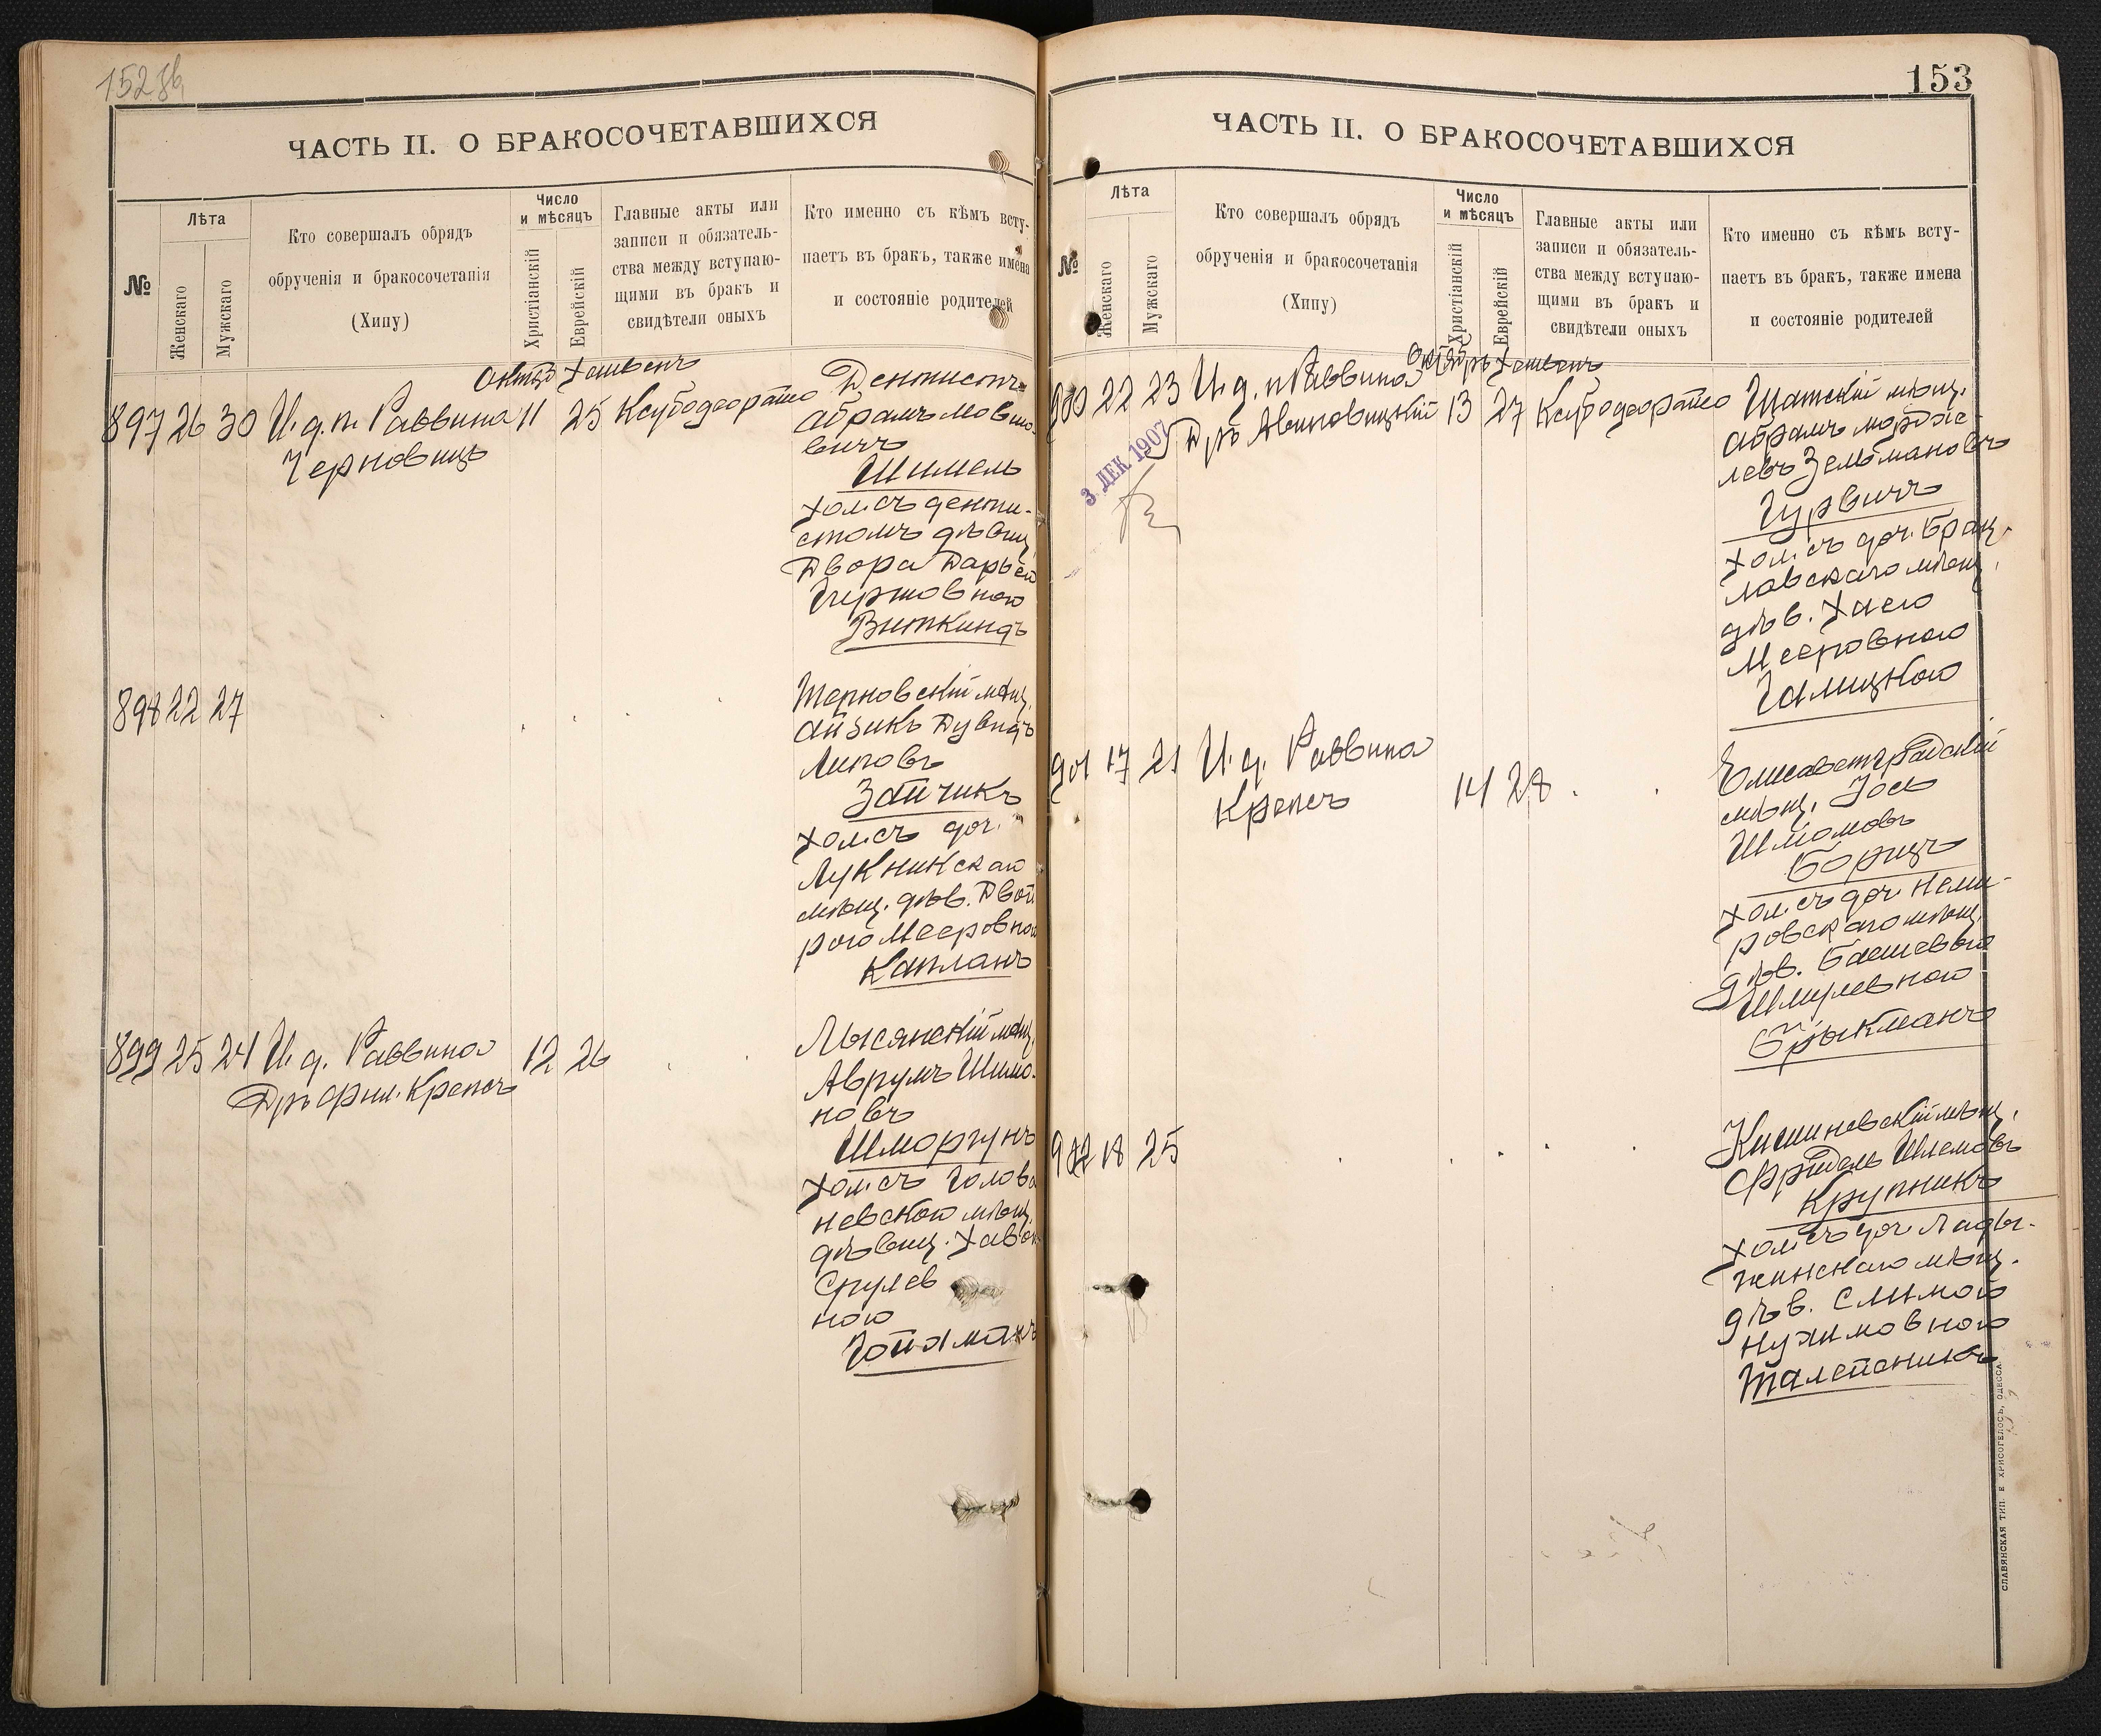 152 об
ЧАСТЬ II. О БРАКОСОЧЕТАВШИХСЯ
№
Лѣта
Женскаго
Мужскаго
Кто совершалъ обрядъ
обрученія и бракосочетанія
(Хипу)
Число
и мѣсяцъ
Христіанскій
Еврейскій
Главные акты или
записи и обязатель-
ства между вступаю-
щими въ бракъ и
свидѣтели оныхъ
Кто именно съ кѣмъ всту-
паетъ въ бракъ, также имена
и состояніе родителей
897 26 30 И. д. п. Раввина 11 25
Черновицъ
Дентистъ
Абрамъ Мовшо-
вичъ
Шимель
хол. съ денти-
стомъ дѣвиц.
Двора Дарьей
Гиршовною
Виткиндъ
898 22 27
Терновскій мѣщ.
Айзикъ Дувидъ
Липовъ
Зайчикъ
хол. съ доч.
Лукникскаго
мѣщ. дѣв. Двой
рою Мееровною
Капланъ
899 25 24 И. д. Раввина 12 26
Дръ Фил. Крепсъ
Лысянскій мѣщ.
Аврумъ Шимо-
новъ
Шморгунъ
хол. съ Голова
невскою мѣщ.
дѣвиц. Хавою
Срулев
ною
Гойхманъ
153
ЧАСТЬ II. О БРАКОСОЧЕТАВШИХСЯ
№
Лѣта
Женскаго
Мужскаго
Кто совершалъ обрядъ
обрученія и бракосочетанія
(Хипу)
Число
и мѣсяцъ
Христіанскій
Еврейскій
Главные акты или
записи и обязатель-
ства между вступаю-
щими въ бракъ и
свидѣтели оныхъ
Кто именно съ кѣмъ всту-
паетъ въ бракъ, также имена
и состояніе родителей
Октябрь Хешвенъ
900 22 23 И. д. п. Раввина 13 27
Дръ Авиновицкій
3 ДЕК. 1907
Шатскій мѣщ.
Абрамъ Мордхе-
левъ Зельмановъ
Гурвичъ
хол. съ доч. Брац-
лавскаго мѣщ.
дѣв. Хаею
Мееровною
Галицкою
901 17 21 И. д. Раввина
Крепсъ 14 28
Елисаветградскій
мѣщ. Іось
Шломовъ
Борицъ
хол. съ доч. Неми-
ровскаго мѣщ.
дѣв. Башевою
Шмулевною
Брыкманъ
902 18 25
Кишиневскій мѣщ.
Фридель Шлемовъ
Крупникъ
хол. съ доч. Лады-
жинскаго мѣщ.
дѣв. Симою
Нухимовною
Талейсникъ
СЛАВЯНСКАЯ ТИП. Е ХРИСОГЕЛОСЪ, ОДЕССА